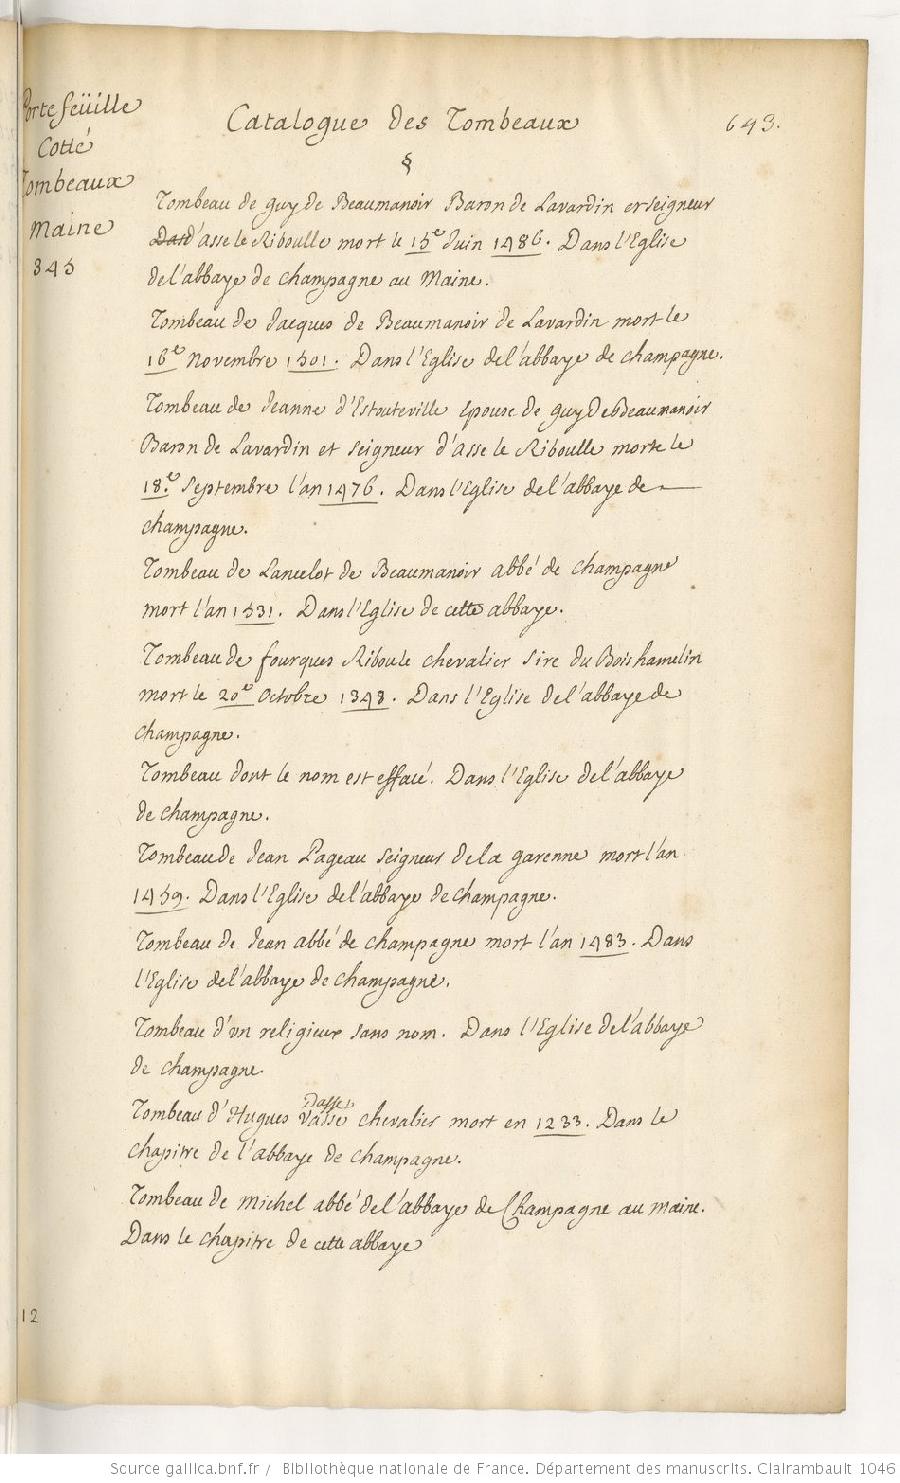 Portefeüille
Cotté
Tombeaux
Maine
345
Catalogue des Tombeaux
643.
§
Tombeau de guy de Beaumanoir Baron de Lavardin et seigneur
d'asse le Riboulle mort le 15e Juin 1486. Dans l'Eglise
de l'abbaye de champagne au Maine.
Tombeau de Jacques de Beaumanoir de Lavardin mort le
16e Novembre 1501. Dans l'Eglise de l'abbaye de champagne.
Tombeau de Jeanne d'Estouteville Epouse de guy de Beaumanoir
Baron de Lavardin et seigneur d'asse le Riboulle morte le
18.e Septembre l'an 1476. Dans l'Eglise de l'abbaye de
champagne.
Tombeau de Lancelot de Beaumanoir abbé de champagne
mort l'an 1531. Dans l'Eglise de cette abbaye.
Tombeau de fourques Riboule chevalier Sire du Bois hamelin
mort le 20e octobre 1348. Dans l'Eglise de l'abbaye de
champagne.
Tombeau dont le nom est effacé. Dans l'Eglise de l'abbaye
de champagne.
Tombeau de Jean Pageau seigneur de la garenne mort l'an
1459. Dans l'Eglise de l'abbaye de champagne.
Tombeau de Jean abbé de champagne mort l'an 1483. Dans
l'Eglise de l'abbaye de champagne.
Tombeau d'un religieux sans nom. Dans l'Eglise de l'abbaye
de champagne.
Dasse
Tombeau d'Hugues Vassé chevalier mort en 1233. Dans le
chapitre de l'abbaye de champagne.
Tombeau de michel abbé de l'abbaye de Champagne au maine.
Dans le chapitre de cette abbaye
12
Source gallica.bnf.fr / Bibliothèque nationale de France. Département des manuscrits. Clairambault 1046